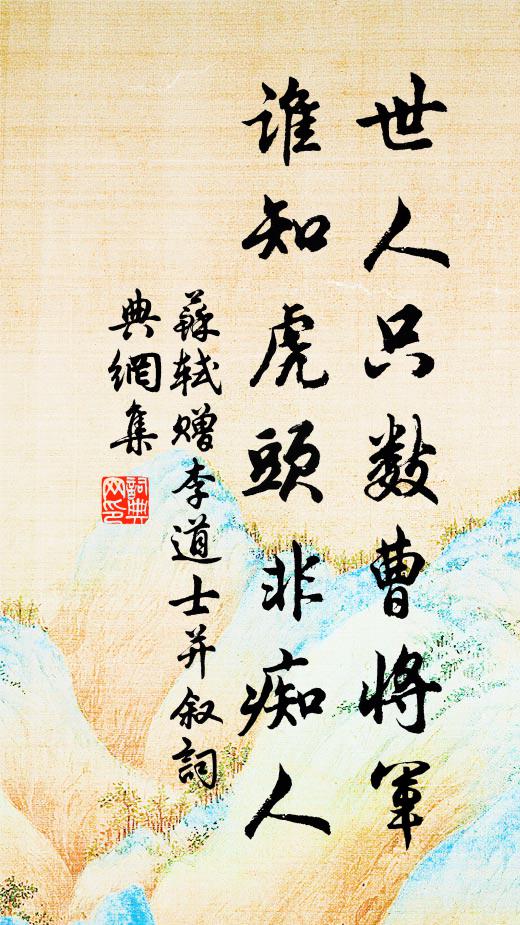 世人只数曹將軍
谁知虎頭非痴人
蘇軾赠李道士并叙詞
典網集
詞典网印